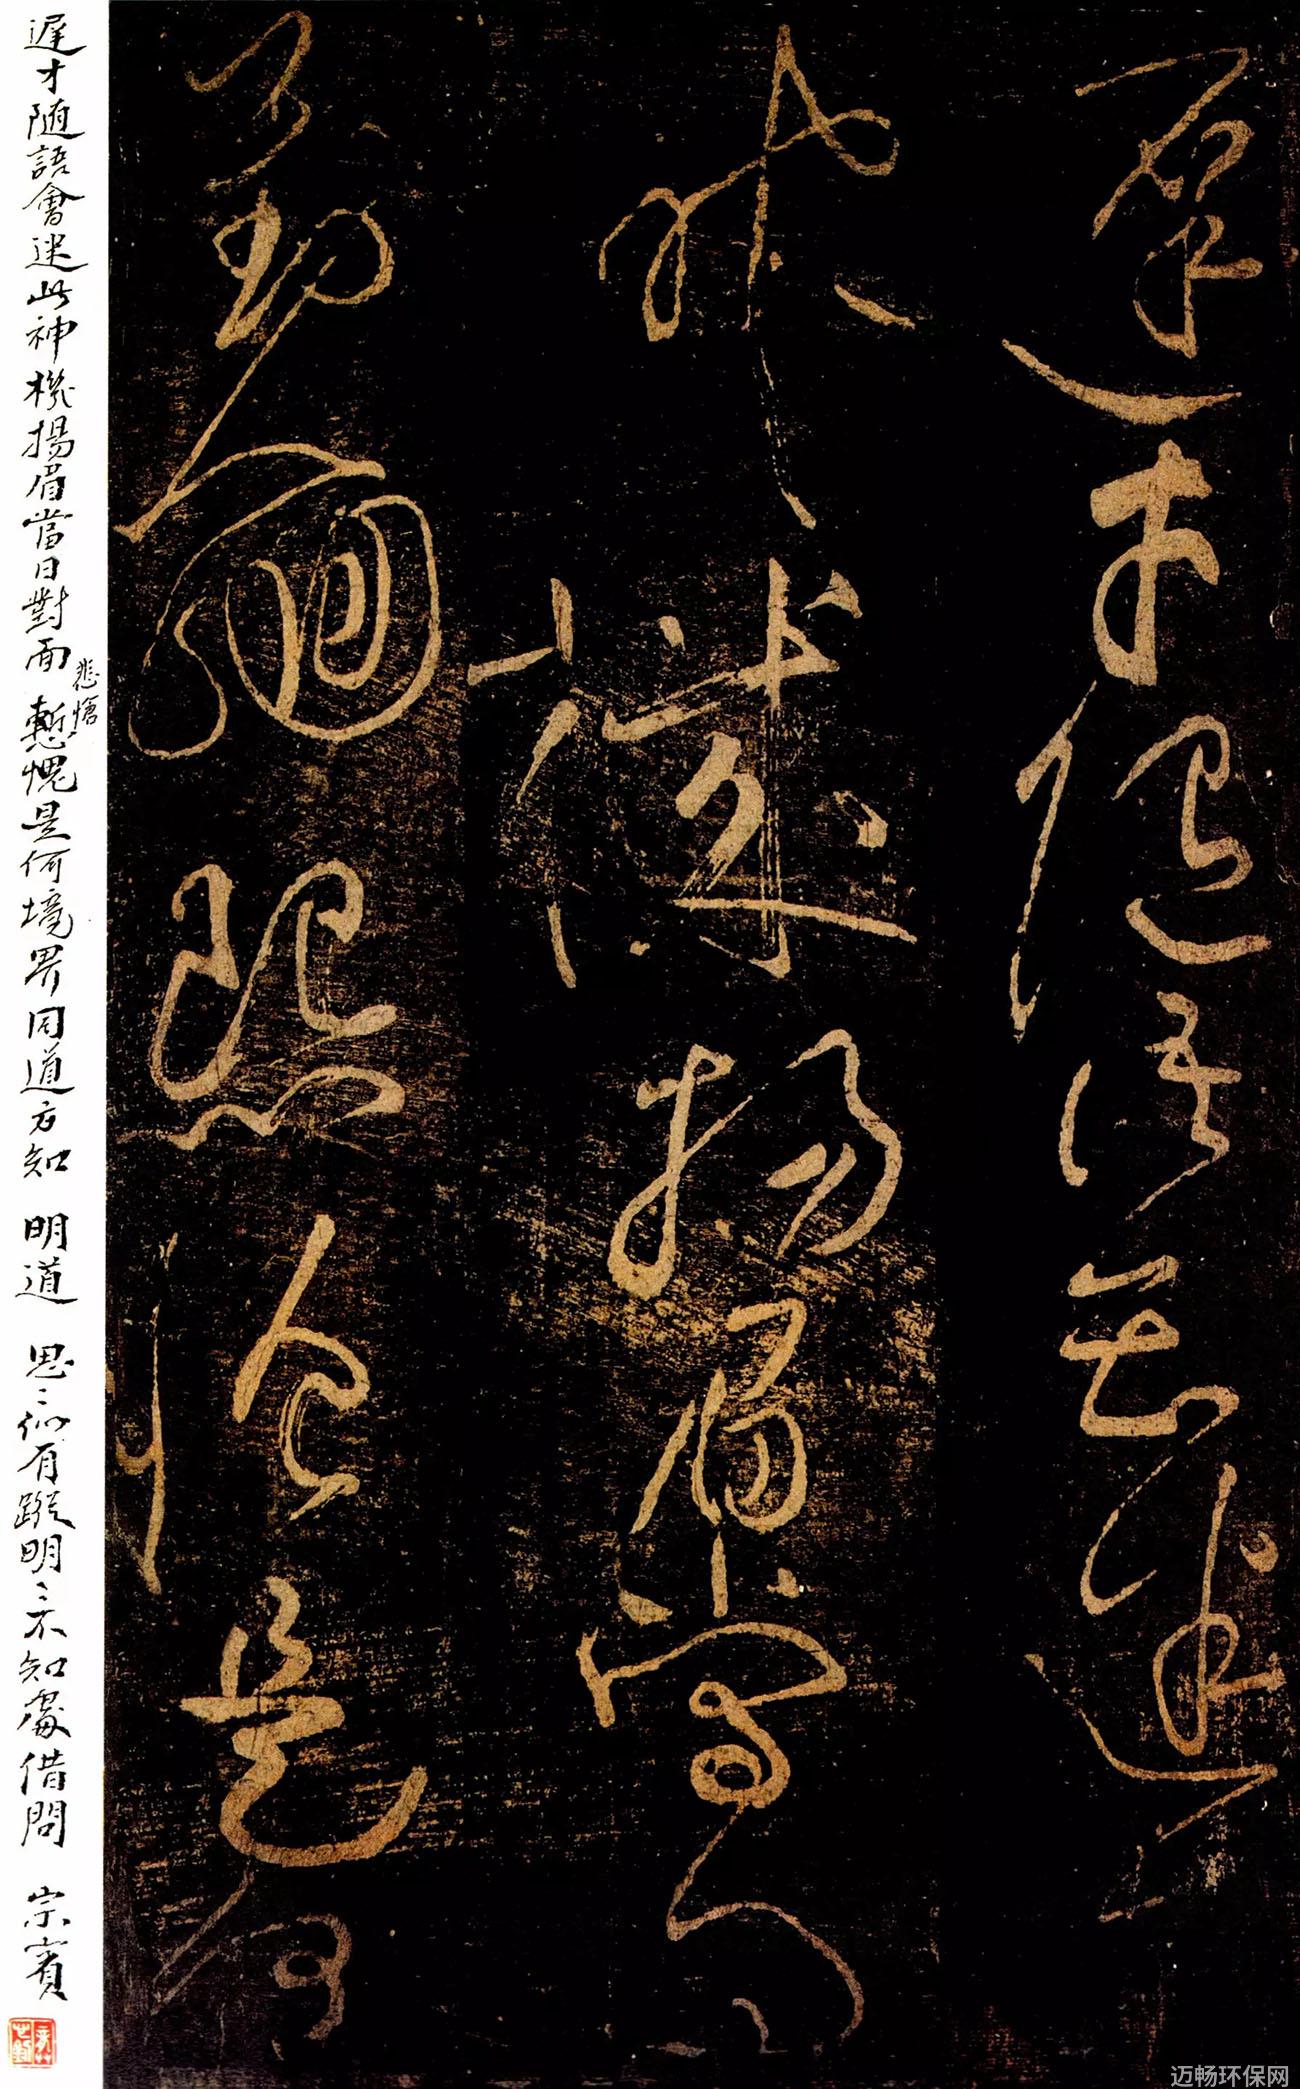 遲才随語會迷此
神機揚眉當日
對面是何
遲才随語會迷此神機揚眉當日對面慙愧是何境界同道方知 明道 思〻似有蹤明〻不知處借問 宗賓
悲愴
迈畅环保网